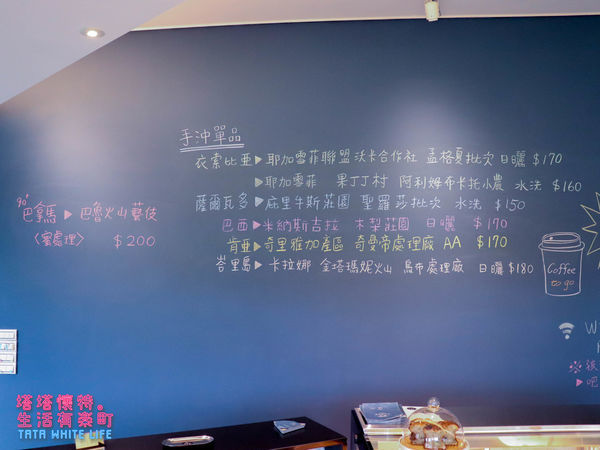 手沖單品
衣索比亞▶耶加雪菲聯盟 沃卡合作社 孟格夏批次 日曬 $170
▶耶加雪菲 果丁丁村 阿利姆布卡托小農 水洗 $160
薩爾瓦多▶庇里牛斯莊園 聖羅莎批次 水洗 $150
巴西▶米納斯吉拉 木梨莊園 日曬 $170
肯亞▶奇里雅加產區 奇曼帝處理廠 AA $170
峇里島▶卡拉娜 金塔瑪妮火山 烏布處理廠 日曬 $180
90+
巴拿馬▶巴魯火山藝伎
〈蜜處理〉 $200
Coffee
to go
W
※後
▶吧
塔塔懷特。
生活有樂町
TATA WHITE LIFE